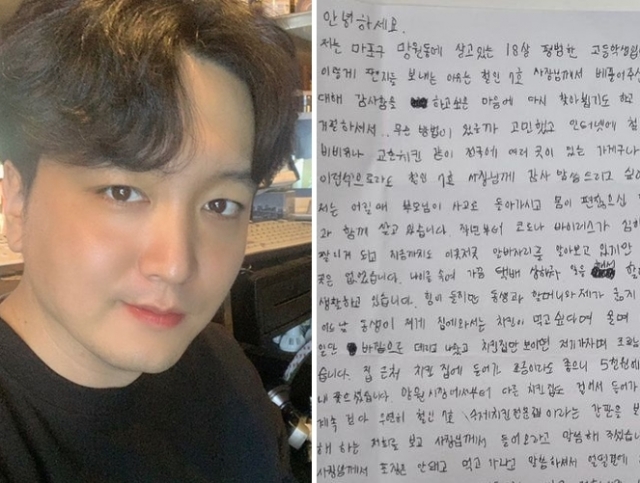 안녕하세요.
저는 마포구 망원동에 살고있는 18살 평범한 고등학생입
이렇게 편지를 보내는 이유는 철인 7호 사장님께서 베풀어주신
대해 감사함을 하고싶은 마음에 다시 찾아뵙기도 하고
거절하셔서.. 무슨 방법이 있을까 고민했고 인터넷에 철
비비큐나 교촌치킨 같이 전국에 여러 곳이 있는 가게구나
이런식으로라도 철인 7호 사장님께 감사 말씀드리고 싶어
저는 어릴때 부모님이 사고로 돌아가시고 몸이 편찮으신 할
과 함께 살고 있습니다. 작년부터 코로나 바이러스가 심해
잘리게 되고 지금까지도 이곳저곳 알바자리를 알아보고 있지만
곳은 없었습니다. 나이를 속여 가끔 택배 상하차 일을 해서 할
생활하고 있습니다. 힘이 들지만 동생과 할머니와 제가 굶지
어느날 동생이 제게 집에와서는 치킨이 먹고싶다며 울며
일단 바깥으로 데리고 나왔고 치킨집만 보이면 저기가자며 조르
습니다. 집 근처 치킨 집에 들어가 조금이라도 좋으니 5천원에
내쫓으셨습니다. 망원시장에서부터 다른 치킨집도 걸어서 들어가
계속 걷다 우연히 철인 7호 수제치킨전문점이라는 간판을 보
해 하는 저희를 보고 사장님께서 들어오라고 말씀해 주셨습니
사장님께서 포장은 안돼고 먹고 가라고 말씀하셔서 얼떨결에